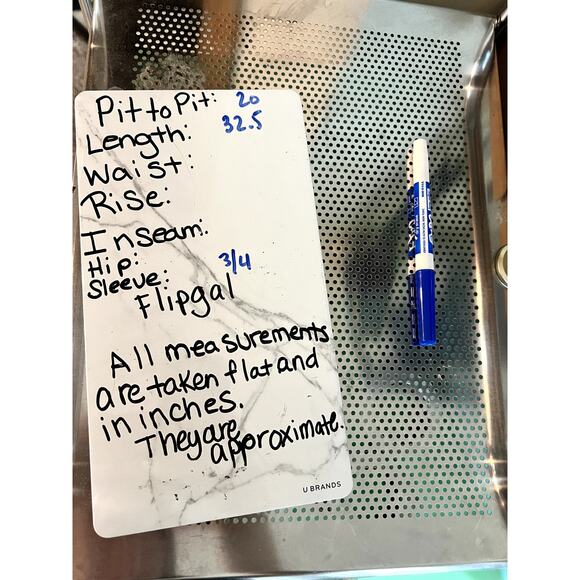 Pit to Pit: 20
Length: 32.5
Waist:
Rise:
Inseam:
Hip:
Sleeve: 3/4
Flipgal
All measurements
are taken flat and
in inches.
They are
approximate.
U BRANDS